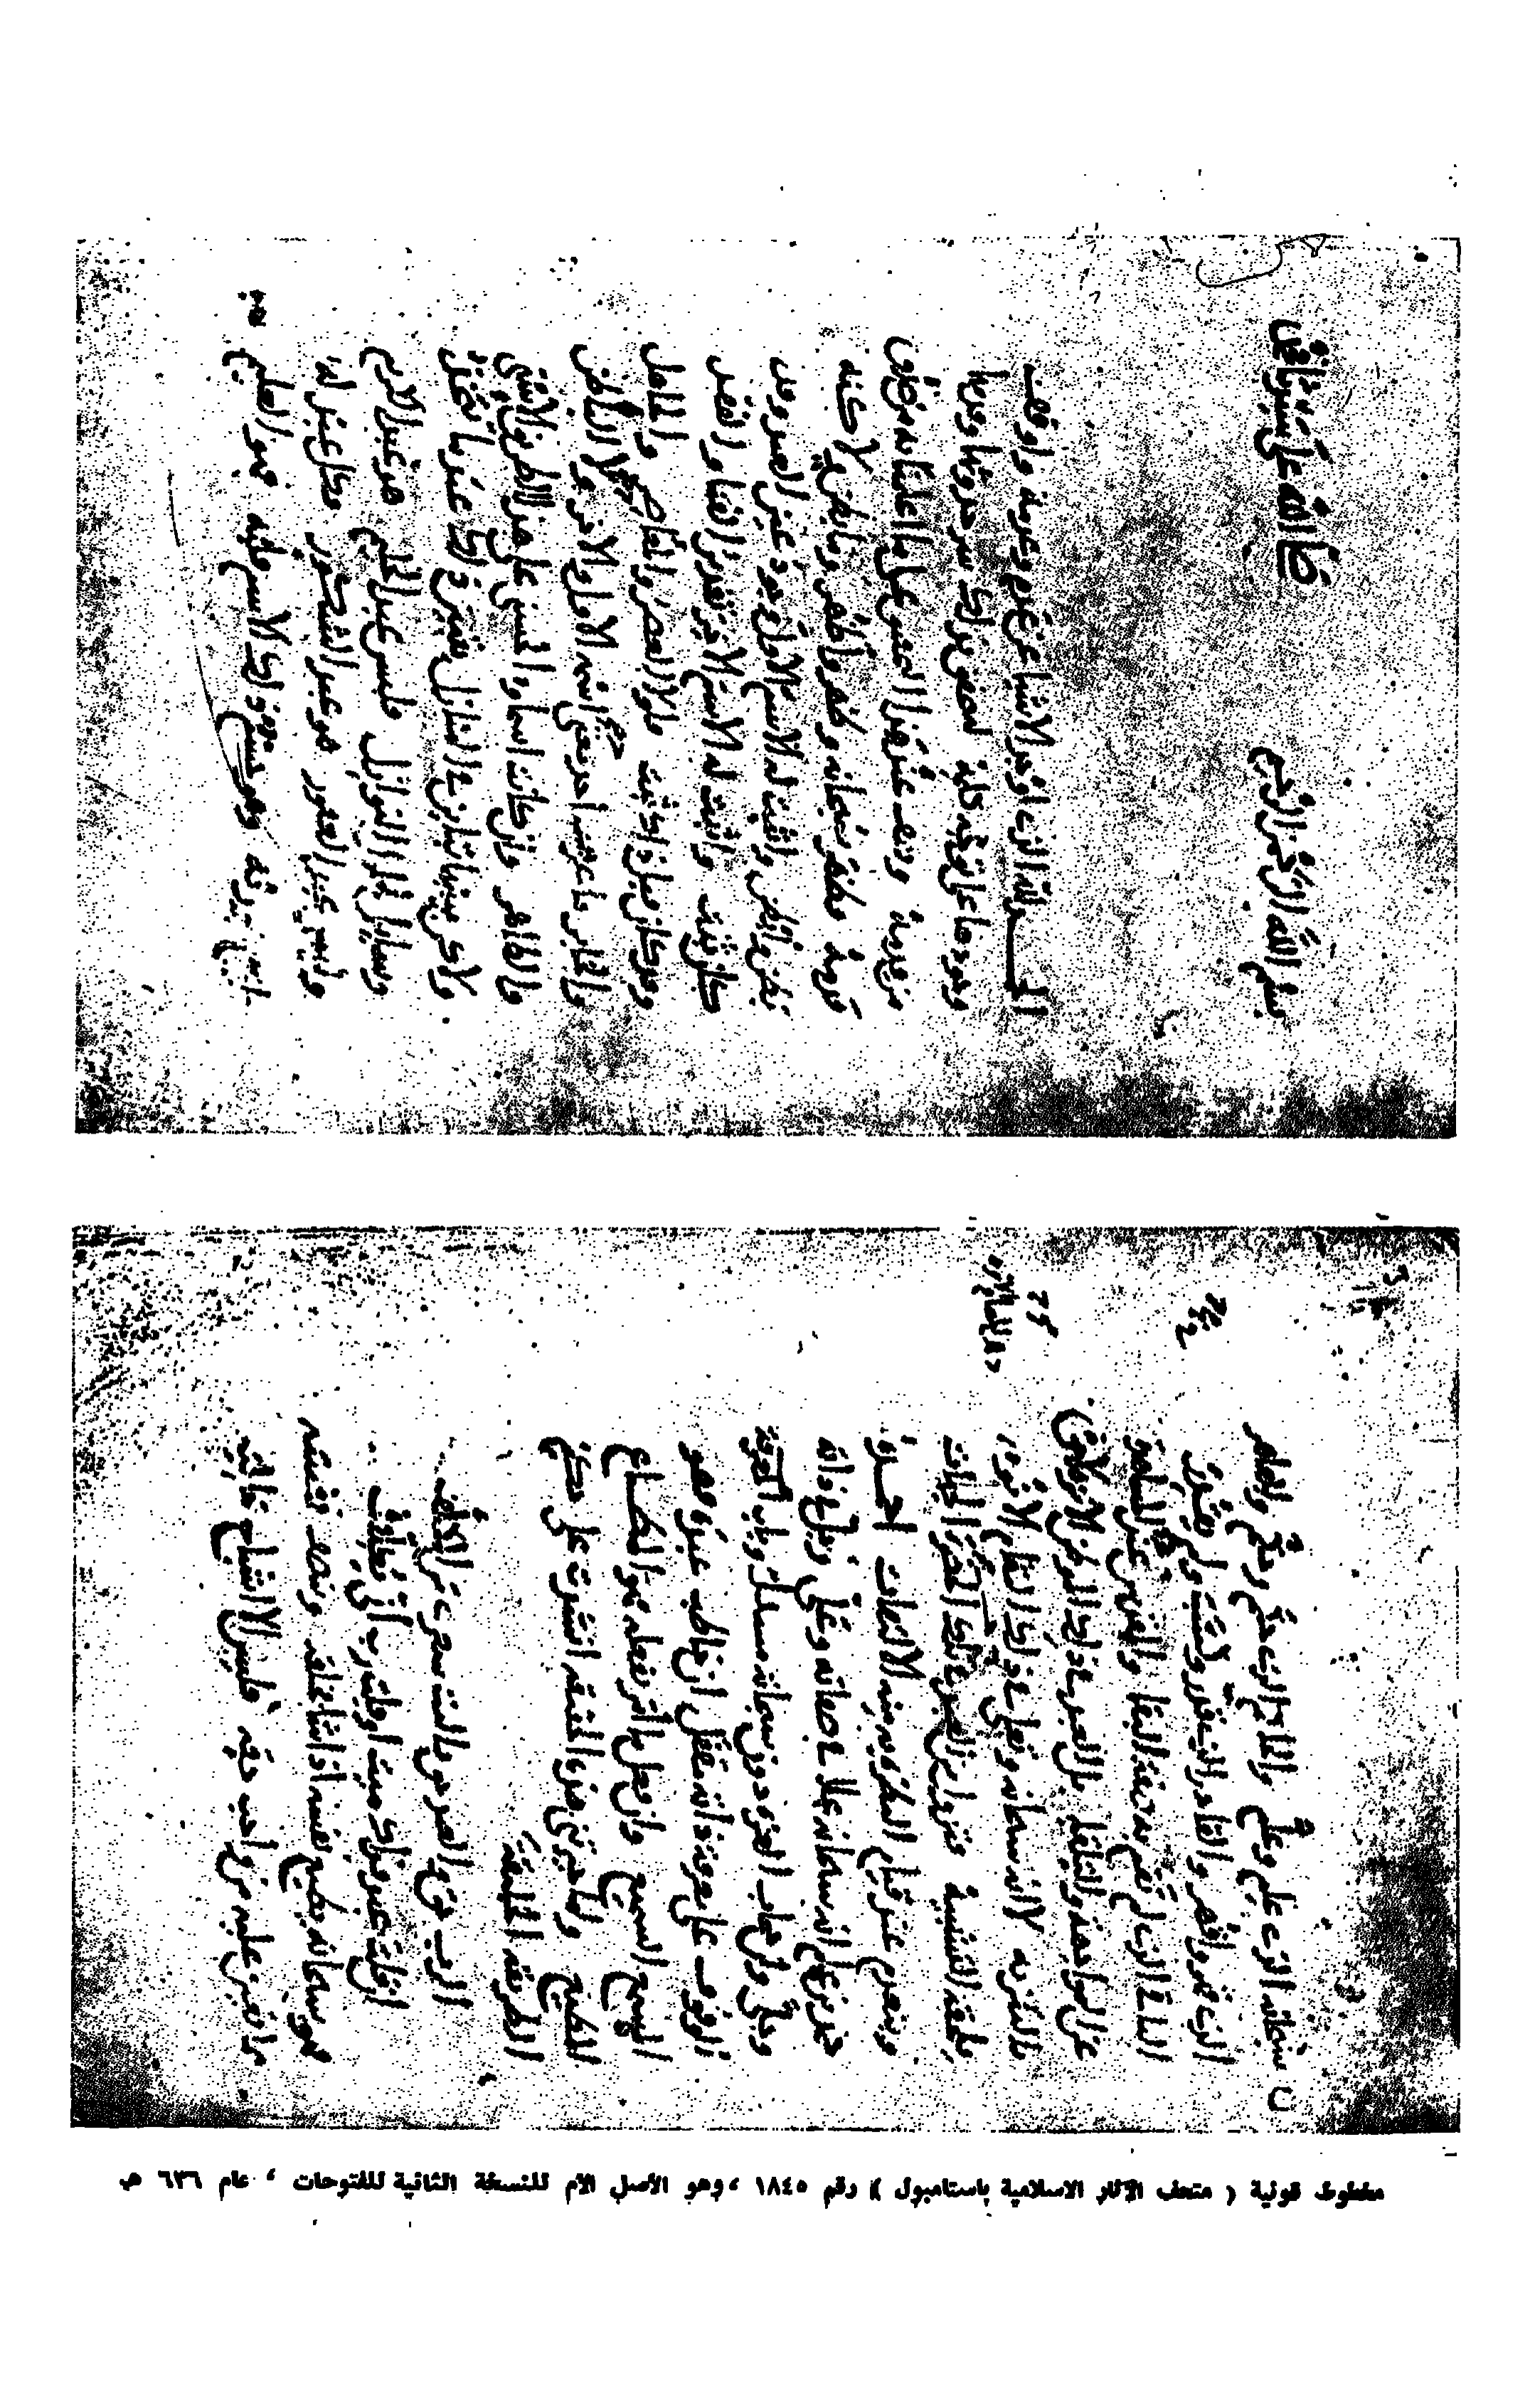 بسم الله الرحمن الرحيم صلى الله على سيدنا محمد
الحمد لله الذي اوجد الاشيا عن عدم وعدمه واوقف
وجودها على توجه كلمه لنحقق بذلك سر حدوثها وقدمها
من قدمه ونقف عند هذا التحقيق على ما اعلمنا به من صدق
قدمه فظهر سبحانه وظهر واظهر وما بطن ولاكنه
بطن وابطن واثبت له الاسم الاول وجود عين العبد وقد
كان ثبت واثبت له الاسم الاخر تقدير الفنا والفقد
وقد كان قبل ذلك ثبت فلولا العصر والمعاصر والجاهل
والخابر ما عرف احد معنى اسمه الاول والاخر ولا الباطن
والظاهر وان كانت اسماوه الحسنى على هذا الطريق الاسنى
ولاكن بينها تباين في المنازل يتبين ذلك عندما تتخذ
وسايل لحلول النوازل فليس عبد الحليم هو عبد الكريم
وليس عبد الغفور هو عبد الشكور فكل عبد له
اسم هو ربه وهو جسم ذلك الاسم قلبه فهو العليم
سبحانه الذي علم وعلم والحاكم الذي حكم وحكم والقاهر
الذي قهر واقهر والقادر الذي قدر وكسب ولم يقدر
الباقي الذي لم تقم به صفة البقا والمقدس عند المشاهدة
عن المواجهة والتلقا بل العبد في ذلك الموطن الانزه لاحق
بالتنزيه لا انه سبحانه وتعالى في ذلك المقام الانوه
يلحقه التشبيه فتزول من العبد في تلك الحضرة الجهات
وينعدم عند قيام النظرة به منه الالتفات احمده
حمد من علم انه سبحانه علا في صفاته وعلى وجل في ذاته
وجلى وان حجاب العزة دون سبحاته مسدل وباب
الوقوف على معرفة ذاته مقفل ان خاطب عبده فهو
المسمع السميع وان فعل ما امر بفعله فهو المطاع
المطيع ولما حيرتني هذه الحقيقة انشدت على حكم
الطريقة للخليقة
الرب حق والعبد حق يا ليت شعري من المكلف
ان قلت عبد فذاك ميت او قلت رب انى يكلف
فهو سبحانه يطيع نفسه اذا شا بخلقه وينصف نفسه
مما تعين عليه من واجب حقه فليس الا اشباح خالية
مخطوط قونية ( متحف الآثار الاسلامية باستامبول ) رقم ١٨٤٥ ، وهو الأصل الأم للنسخة الثانية للفتوحات ، عام ٦٣٦ هـ